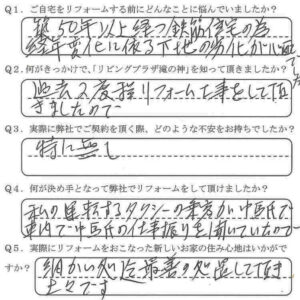 Q1. ご自宅をリフォームする前にどんなことに悩んでいましたか?
築50年以上経つ鉄筋住宅の為
経年変化に依る下地の劣化が心配です
Q2. 何がきっかけで、「リビングプラザ滝の神」を知って頂きましたか?
過去2度程リフォーム工事をして頂
きましたので
Q3. 実際に弊社でご契約を頂く際、どのような不安をお持ちでしたか?
特に無し
Q4. 何が決め手となって弊社でリフォームをして頂けましたか?
私の運転するタクシーの乗客が中西氏で
車内で中西氏の仕事振りを聞いていたので
Q5. 実際にリフォームをおこなった新しいお家の住み心地はいかがで
すか?
細かい処迄最善の処置して頂き